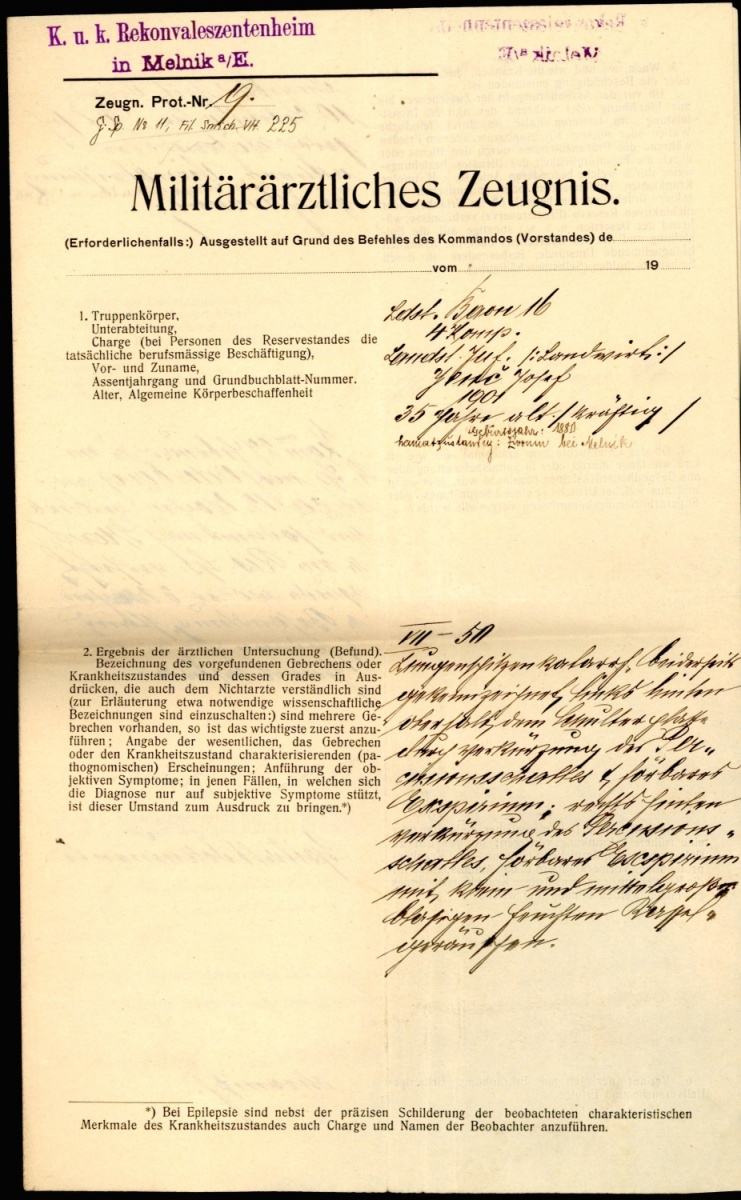 K. u. k. Rekonvaleszentenheim
in Melnik a/E.
Zeugn. Prot.-Nr. 9.
No 11, 225
Militärärztliches Zeugnis.
(Erforderlichenfalls:) Ausgestellt auf Grund des Befehles des Kommandos (Vorstandes) de
vom 19
1. Truppenkörper,
Unterabteitung,
Charge (bei Personen des Reservestandes die
tatsächliche berufsmässige Beschäftigung),
Vor- und Zuname,
Assentjahrgang und Grundbuchblatt-Nummer.
Alter, Algemeine Körperbeschaffenheit
Ldst. Baon 16
4 Komp.
Landst. Inf. /:Landwirt:/
Josef
1901
35 Jahre alt / kräftig /
Geburtsjahr: 1880
heimatzuständig: bei Melnik
2. Ergebnis der ärztlichen Untersuchung (Befund).
Bezeichnung des vorgefundenen Gebrechens oder
Krankheitszustandes und dessen Grades in Aus-
drücken, die auch dem Nichtarzte verständlich sind
(zur Erläuterung etwa notwendige wissenschaftliche
Bezeichnungen sind einzuschalten:) sind mehrere Ge-
brechen vorhanden, so ist das wichtigste zuerst anzu-
führen; Angabe der wesentlichen, das Gebrechen
oder den Krankheitszustand charakterisierenden (pa-
thognomischen) Erscheinungen; Anführung der ob-
jektiven Symptome; in jenen Fällen, in welchen sich
die Diagnose nur auf subjektive Symptome stützt,
ist dieser Umstand zum Ausdruck zu bringen.*)
VII – 50
Lungenspitzenkatarrh, beiderseits
gekennzeichnet, links hinten
oberhalb dem Schulterblatte
durch Verkürzung des Per-
cussionsschalles & hörbares
Exspirium; rechts hinten
Verkürzung des Percussions-
schalles, hörbares Exspirium
mit klein und mittelgroß
blasigen feuchten Rassel-
geräuschen.
*) Bei Epilepsie sind nebst der präzisen Schilderung der beobachteten charakteristischen
Merkmale des Krankheitszustandes auch Charge und Namen der Beobachter anzuführen.